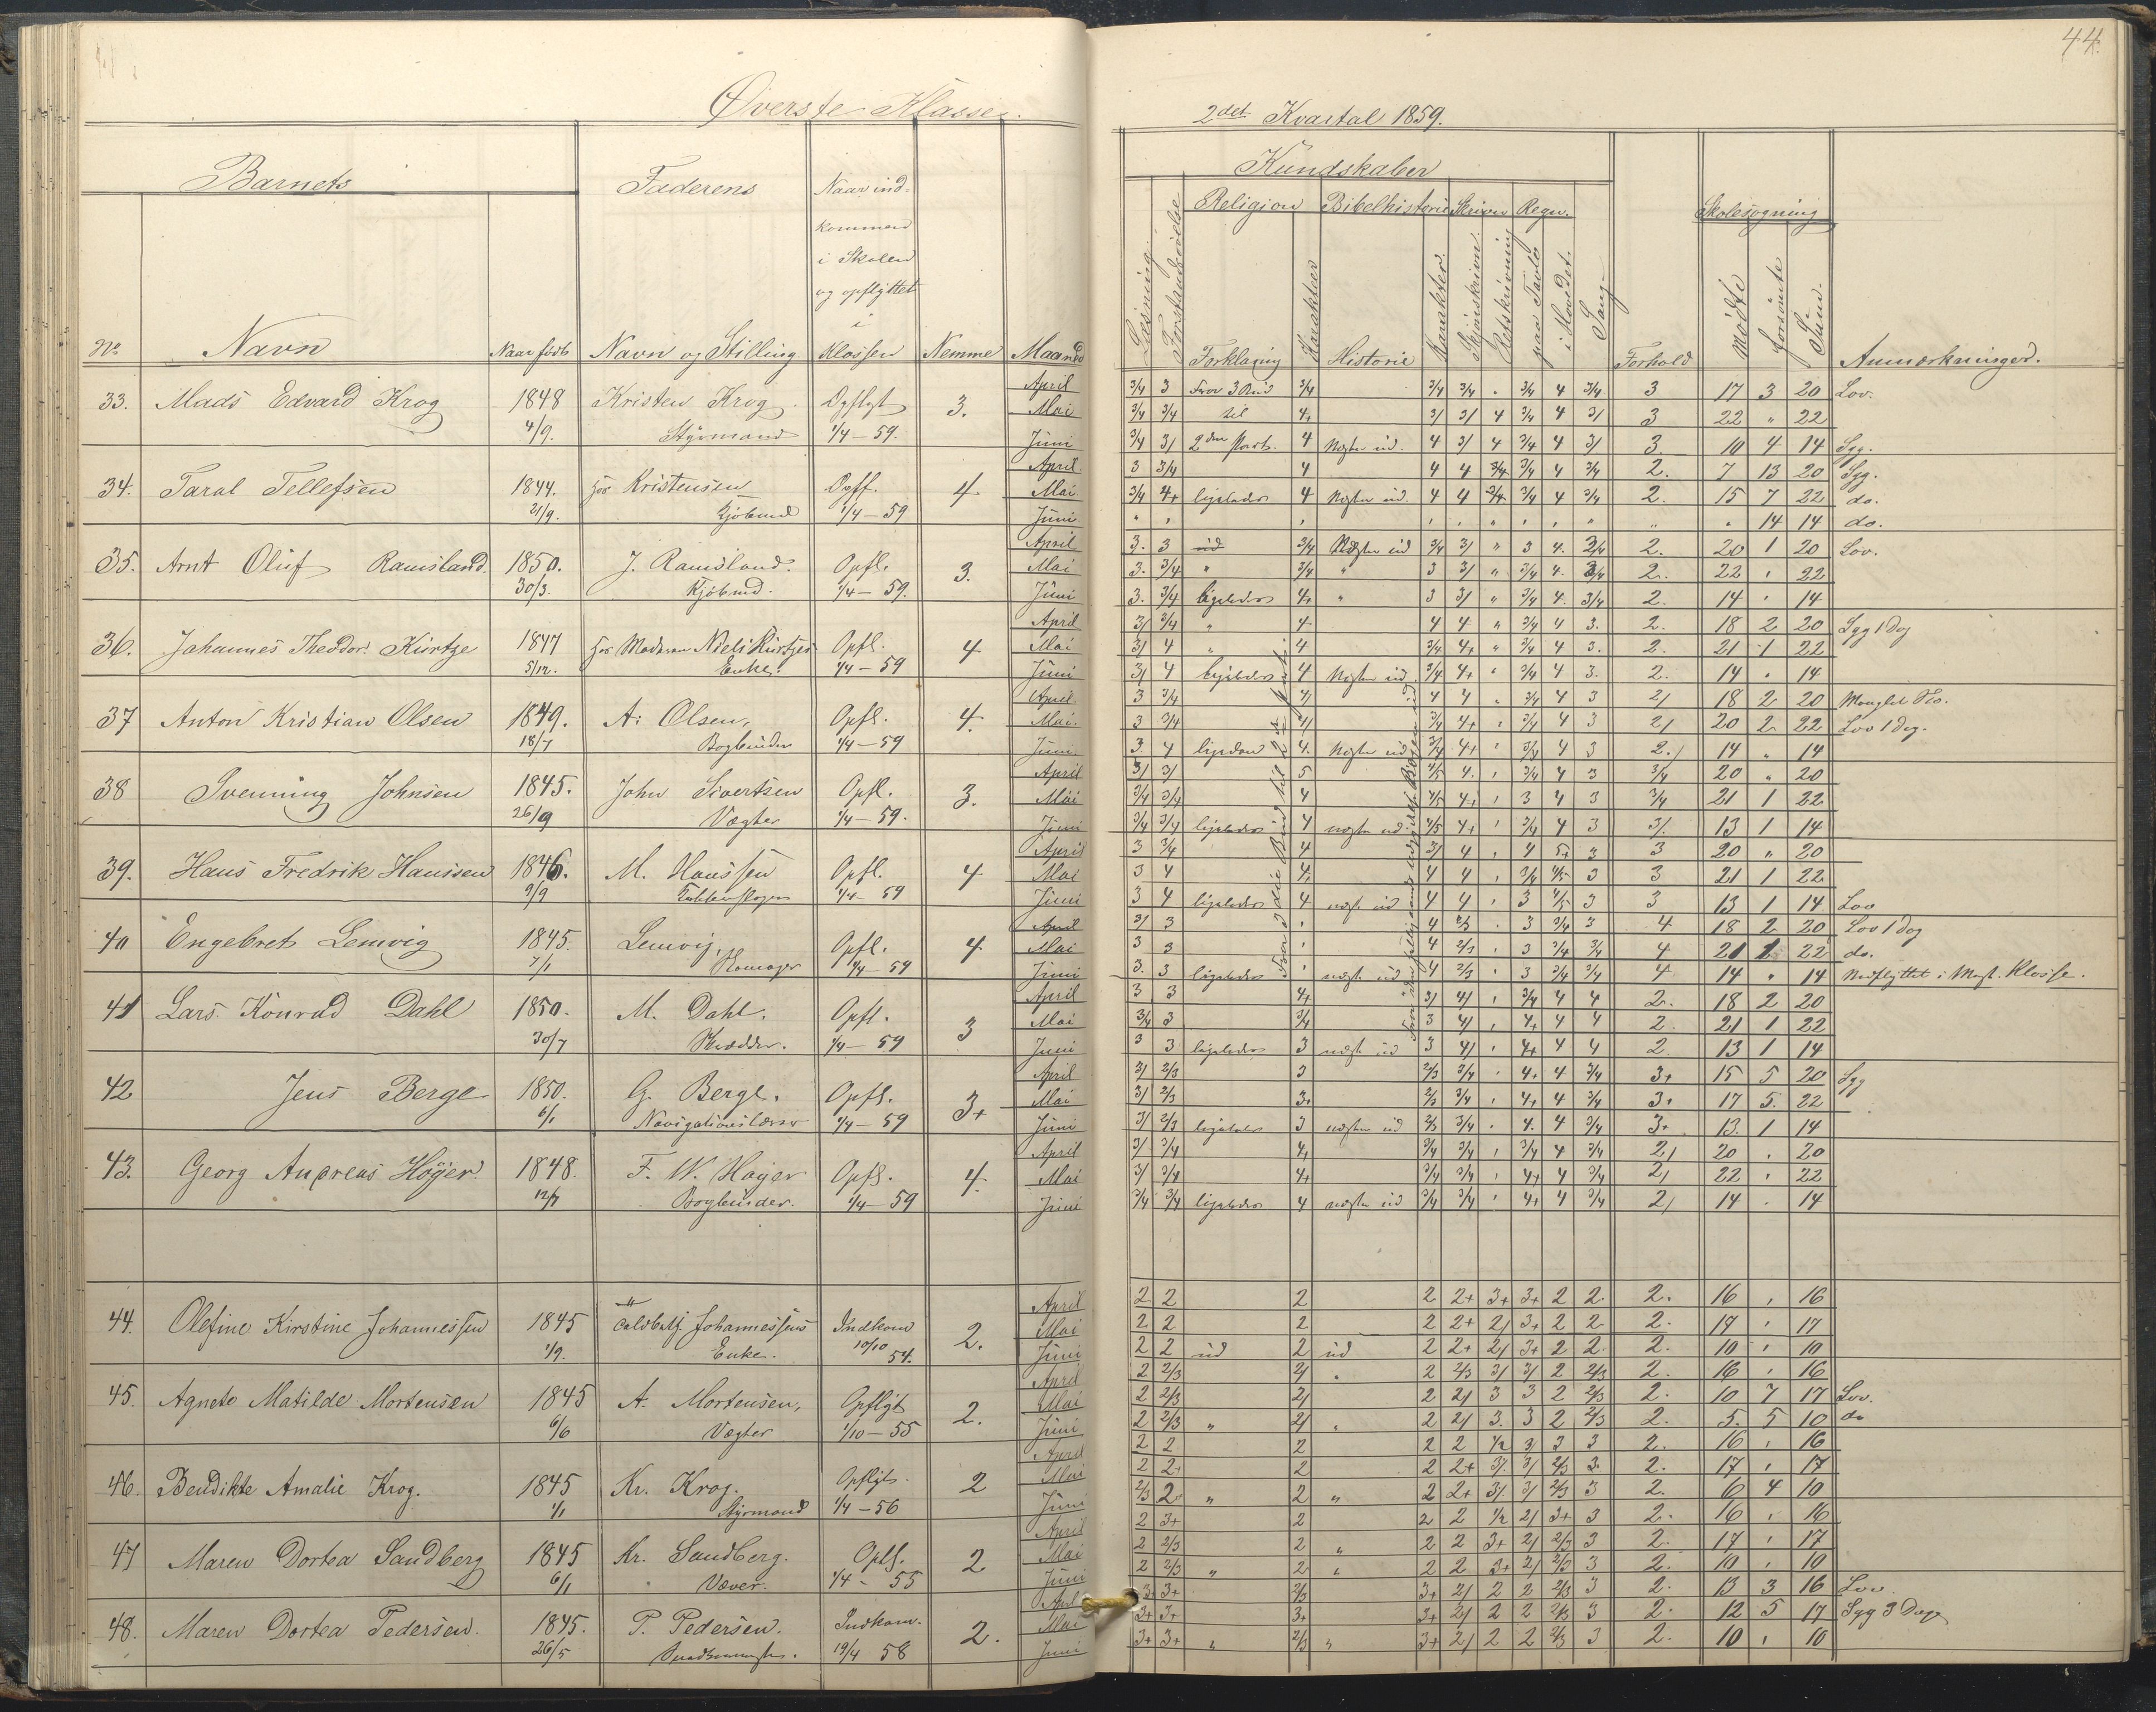 44.
Øverste Klasse.
2det Kvartal 1859.
Barnets
Faderens
Naar ind-
kommen
i Skolen
og opflyttet
i
Klassen
Kundskaber
Religion Bibelhistorie Skrivn Regn.
Skolesøgning
No Navn Naar født Navn og Stilling Nemme Maaned
Læsning Forstandsøvelse Forklaring Karakter Historie Karakter Skjønskrivn. Retskrivning paa Tavle i Hovedet. Sang Forhold Mødte forsømte Sum. Anmærkninger.
33. Mads Edvard Krog 1848 Kristen Krog Opflyt 3. April 3/4 3 Fra 3/4 3/4 3/4 3/4 4 3/4 3 17 3 20 Lov.
4/9. Styrmand 1/4 - 59. Mai 3/4 3/4 til 4+ 3/ 3/ 4 3/4 4 3/ 3 22 " 22
Juni 3/4 3/ 2den Part. 4 4 3/ 4 3/4 4 3/ 3. 10 4 14 Syg.
34. Taral Tellefsen 1844. Kristensen Opfl. 4 April 3 3/4 4 4 4 3/4 3/4 4 3/4 2. 7 13 20 Syg.
21/9. Kjøbmd 1/4 - 59 Mai 3/4 4+ ligeledes 4 4 4 3/4 3/4 4 3/4 2. 15 7 22 do.
Juni 14 14 do.
35. Arnt Oluf Ramsland. 1850. J. Ramsland. Opfl. 3. April 3. 3 ud 3/4 ud 3/4 3/ " 3 4. 3/4 2. 20 1 20 Lov.
30/3. Kjøbmd. 1/4 - 59. Mai 3. 3/4 " 3/4 " 3 3/ " 3/4 4. 3/4 2. 22 , 22
Juni 3. 3/4 ligeledes 4+ " 3 3/ " 3/4 4. 3/4 2. 14 14
36. Johannes Theodor Kürtze 1847 Moderen Niels Kürtzes Opfl. 4 April 3/ 3/4 " 4 4 4 " 3/4 4 3. 2. 18 2 20 Syg 1 Dag
5/12. Enke. 1/4 - 59 Mai 3/ 4 " 4 3/4 4+ " 3/4 4 3. 2. 21 1 22
Juni 3/ 4 ligeledes 4 ud 3/4 4+ " 3/4 4 3. 2. 14 14
37 Anton Kristian Olsen 1849. A: Olsen, Opfl. 4. April 3 3/4 4/ 4 4 3/4 4 3 2/ 18 2 20
18/7 Bogbinder 1/4 - 59 Mai 3 3/4 4/ 3/4 4+ 3/4 4 3 2/ 20 2 22 Lov 1 dag.
Juni 3 4 4. ud 3/4 4+ 3/4 4 3 2./ 14 14
38 Svenning Johnsen 1845. John Sivertsen Opfl. 3. April 3/ 3/ 5 4/5 4. 3/4 4 3 3/4 20 20
26/9 Vægter 1/4 - 59. Mai 3/4 3/4 4 4/5 4+ 3 4 3 3/4 21 1 22
Juni 3/4 3/4 ligeledes 4 ud 4/5 4+ 3/4 4 3 3/. 13 1 14
39. Hans Fredrik Hanssen 1846. M. Hanssen Opfl. 4 April 3 3/4 4 3/ 4 4 5+ 3 3 20 " 20
9/9 1/4 - 59 Mai 3 4 4+ 4 4 3/4 4/5 3 3 21 1 22
Juni 3 4 ligeledes 4 ud 4 4 3 4/5 3 3 13 1 14 Lov
40 Engebret Lemvig 1845. Lemvig, Opfl. 4 April 3/ 3 4 2/3 3 3/4 3 4 18 2 20 Lov 1 dag
7/1 1/4 - 59 Mai 3 3 4 2/3 3 3/4 3/4 4 21 1 22 do.
Juni 3. 3 ligeledes ud 4 2/3 3 3/4 3/4 4 14 " 14 Nedflyttet i Klasse.
Fra 3die Bud til 2den part:
41 Lars Konrad Dahl 1850. M. Dahl. Opfl. 3 April 3 3 4+ 3/ 4/ 3/4 4 4 2. 18 2 20
30/7 Skrædder. 1/4 - 59 Mai 3/4 3 3/4 3 4/ 4+ 4 4 2. 21 1 22
Juni 3 3 ligeledes 3 ud 3 4/ 4+ 4 4 2. 13 1 14
42 Jens Berge 1850. G. Berge. Opfl. 3+ April 3/ 2/3 3 2/3 3/4 4+ 4 3/4 3+ 15 5 20 Syg
6/1 Navigationslærer 1/4 - 59 Mai 3/ 2/3 3+ 2/3 3/4 4+ 4 3/4 3+ 17 5. 22
Juni 3/ 2/3 ligeledes 3 ud 2/3 3/4 4. 4 3/4 3+ 13. 1 14
43. Georg Andreas Höyer. 1848. F. W. Høyer Opfl. 4. April 3/ 3/4 4+ 3/4 3/4 3/4 4 3/4 2/ 20 20
12/7 Bogbinder. 1/4 - 59 Mai 3/ 3/4 4+ 3/4 3/4 4+ 4 3/4 2/ 22 22
Juni 3/4 3/4 ligeledes 4 ud 3/4 3/4 4+ 4 3/4 2/ 14 14
44. Olefine Kirstine Johannessen 1845 Johannessens Indkom 2. April 2 2 2 2 2+ 3+ 3+ 2 2. 2. 16 16
1/9. Enke. 10/10 54. Mai 2 2 2 2 2+ 2/ 3+ 2 2 2. 17 17
Juni 2 2 ud 2 ud 2 2+ 2/ 3+ 2 2. 2. 10 10
45. Agnete Matilde Mortensen 1845 A. Mortensen, Opflyt 2. April 2 2/3 2/ 2 2/3 3/ 3/ 2 2/3 2. 16 16
6/6 Vægter 1/10 - 55 Mai 2 2/3 2/ 2 2/ 3 3 2 2/3 2. 10 7 17 Lov.
Juni 2 2/3 " 2/ 2 2/ 3. 3 2 2/3 2. 5. 5 10 do
46. Bendikte Amalie Krog. 1845 Kr. Krog. Opflyt. 2 April 2 2 2 2 2 1/2 3/ 3 3 2. 16 16
1/1 Styrmand 1/4 - 56 Mai 2 2+ 2 2 2+ 3/. 3/ 2/3 3. 2. 17 17
Juni 2/3 2 " 2 " 2 2+ 3/. 3/ 2/3 3 2. 6 4 10
47 Maren Dortea Sandberg 1845 Kr. Sandberg. Opfl. 2 April 2 3+ 2 2 2 1/2 2/ 3+ 3 2. 16 16
6/1 Væver. 1/4 - 55 Mai 2 2/3 2 " 2 2 3+ 2/ 2/3 3 2. 17 17
Juni 2 2/3 " 2 2 2 3+ 2/ 2/3 3 2. 10 10
48. Maren Dortea Pedersen. 1845. P. Pedersen. Indkom. 2. April 3+ 3+ 2/3 3+ 2/ 2 2 2/3 3 2. 13 3 16 Lov
26/5 19/4 58 Mai 3+ 3+ 3+ 3+ 2/ 2 2 2/3 3 2. 12 5 17 Syg 3 Dage
Juni 3+ 3+ " 2/3 " 3+ 2/ 2 2 2/3 3 2. 10 10